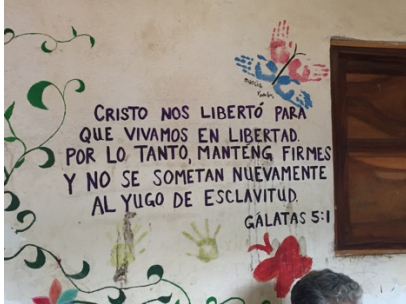 CRISTO NOS LIBERTÓ PARA
QUE VIVAMOS EN LIBERTAD.
POR LO TANTO, MANTENG FIRMES
Y NO SE SOMETAN NUEVAMENTE
AL YUGO DE ESCLAVITUD.
GÁLATAS 5:1